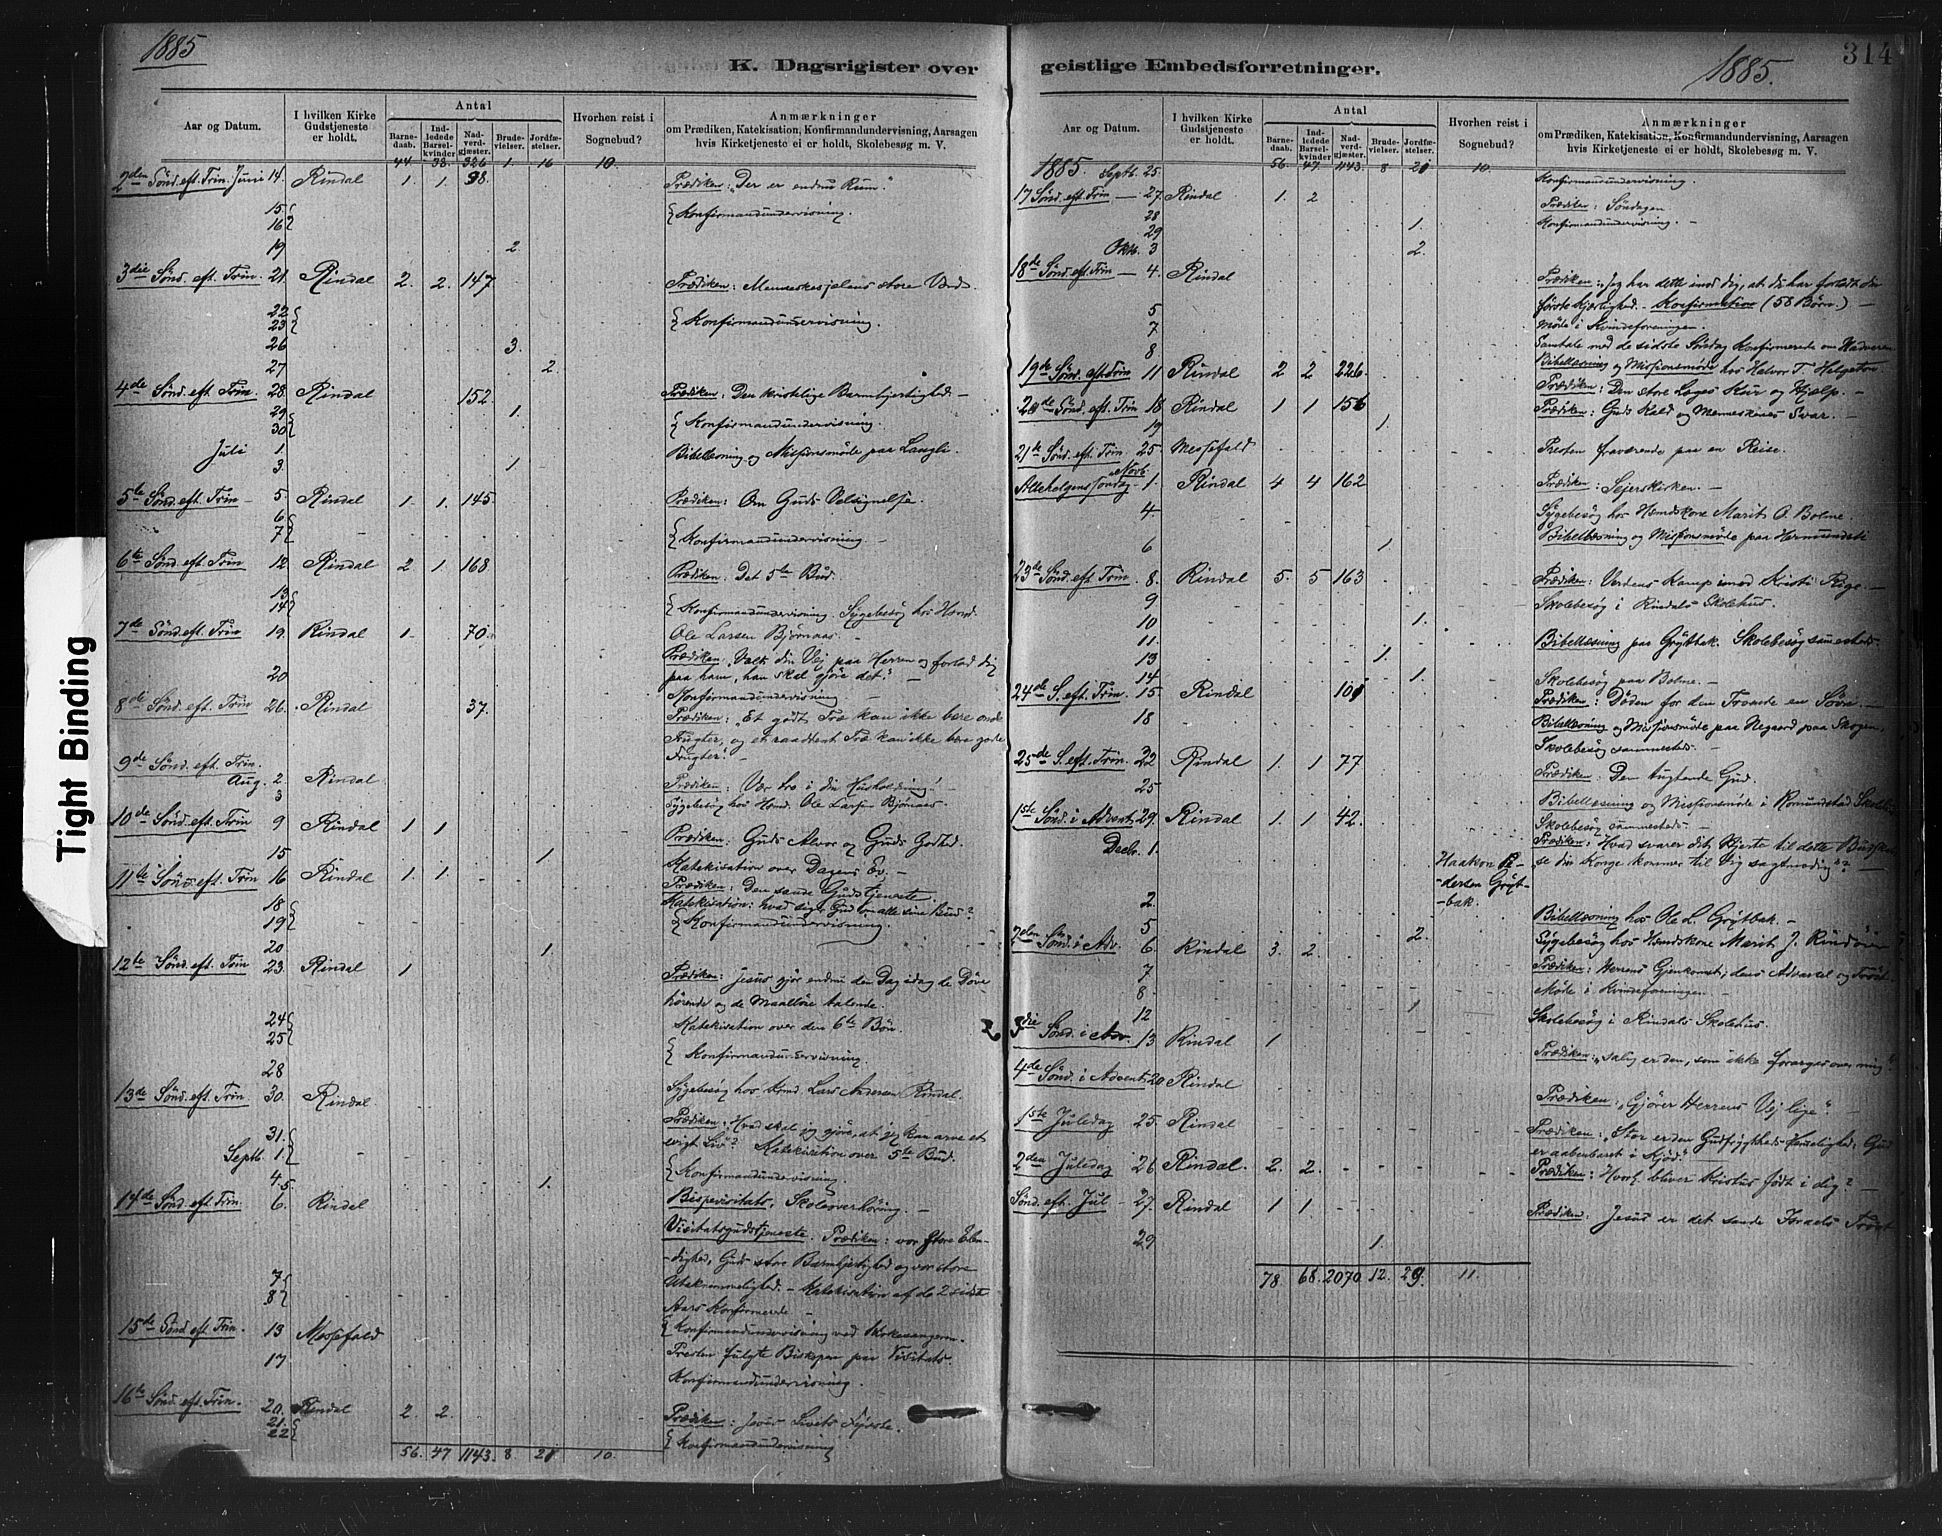 1885
K. Dagsrigister over
Aar og Datum.
I hvilken Kirke Gudstjeneste er holdt.
Antal
Barnedaab.
Indledede Barselkvinder
Nadverdgjæster.
Brudevielser.
Jordfæstelser.
Hvorhen reist i Sognebud?
Anmærkninger
om Prædiken, Katekisation, Konfirmandundervisning, Aarsagen
hvis Kirketjeneste ei er holdt, Skolebesøg m. V.
44. 38. 326 1. 16 10.
2den Sønd. eft. Trin. Juni 14. Rindal 1. 1. 98. Prædiken: "Der er endnu Rum."
15
16 Konfirmandundervisning.
19 2.
3die Sønd. eft. Trin. 21. Rindal 2. 2. 147 Prædiken: Menneskesjælens store Værd
22
23 Konfirmandundervisning.
26 3.
27 2.
4de Sønd. eft. Trin. 28. Rindal 152 Prædiken: Den kristelige Barmhjertighed. —
29 1.
30 Konfirmandundervisning.
Juli 1. Bibellæsning og Missionsmøde paa Langli.
3. 1.
5te Sønd. eft. Trin. 5. Rindal 1 1. 145. Prædiken: Om Guds Velsignelse.
6
7 Konfirmandundervisning. —
6te Sønd. eft. Trin 12 Rindal 2 1 168 Prædiken: Det 5te Bud.
13
14 Konfirmandundervisning. Sygebesøg hos Hmd.
Ole Larsen Bjørnaas. —
7de Sønd. eft. Trin 19. Rindal 1. 70. Prædiken: "Vælt din Vej paa Herren og forlad dig
paa ham, han skal gjøre det." —
20 Konfirmandundervisning —
8de Sønd. eft. Trin 26. Rindal 37. Prædiken: "Et godt Træ kan ikke bære onde
Frugter, og et raaddent Træ kan ikke bære gode
Frugter." —
9de Sønd. eft. Trin.
Aug. 2 Rindal Prædiken: Vær tro i din Husholdning! —
3 Sygebesøg hos Hmd. Ole Larsen Bjørnaas.
10de Sønd. eft. Trin 9 Rindal 1 1 Prædiken: Guds Alvor og Guds Godhed.
Katekisation over Dagens Ev. —
15 1.
11te Sønd. eft. Trin 16 Rindal 1 1. Prædiken: Den sande Gudstjeneste.
Katekisation: hvad siger Gud om alle disse Bud?
18
19 Konfirmandundervisning.
20 1.
12te Sønd. eft. Trin 23. Rindal 1 Prædiken: Jesus gjør endnu den Dag idag de Døve
hørende og de Maalløse talende.
Katekisation over den 6te Bøn.
24
25 Konfirmandundervisning.
28 Sygebesøg hos Hmd. Lars Andersen Rindal.
13de Sønd. eft. Trin 30. Rindal. Prædiken: "Hvad skal jeg gjøre, at jeg kan arve et
evigt Liv"? Katekisation over 5te Bud.
31.
Septb. 1. Konfirmandundervisning.
4.5. 1. Bispevisitats, Skoleoverhøring. —
14de Sønd. eft. Trin. 6. Rindal Visitatsgudstjeneste. Prædiken: vor store Elen-
-dighed, Guds store Barmhjertighed og vor store
Utaknemmelighed. — Katekisation af de 2 sidste
Aars Konfirmerede —
7
8 Konfirmandundervisning ved Kirkesangeren.
15de Sønd eft. Trin. 13 Messefald Presten fulgte Biskopen paa Visitats.
17 Konfirmandundervisning.
16te Sønd. eft. Trin. 20. Rindal 2. 2. Prædiken: Jesus Livets Fyrste.
21.
22 Konfirmandundervisning
56. 47 1143. 8. 21 10.
geistlige Embedsforretninger.
1885.
314
Aar og Datum.
I hvilken Kirke Gudstjeneste er holdt.
Antal
Barnedaab.
Indledede Barselkvinder
Nadverdgjæster.
Brudevielser.
Jordfæstelser.
Hvorhen reist i Sognebud?
Anmærkninger
om Prædiken, Katekisation, Konfirmandundervisning, Aarsagen
hvis Kirketjeneste ei er holdt, Skolebesøg m. V.
56. 47. 1143. 8 21 10.
1885. Septb. 25. Konfirmandundervisning.
17 Sønd. eft. Trin — 27. Rindal 1. 2 Prædiken: Søndagen
28 Konfirmandundervisning. —
29 1.
Oktb. 3 2.
18de Sønd. eft. Trin — 4. Rindal Prædiken: "Jeg har dette imod dig, at du har forladt din
første Kjærlighed. Konfirmation (58 Børn.) —
5 Møde i Kvindeforeningen.
7 Samtale med de sidste Søndag Konfirmerede om Nadveren
8 Bibellæsning og Missionsmøde hos Halvor T. Helgeton
19de Sønd. eft. Trin 11 Rindal 2 2 226. Prædiken: Den store Læges Kur og Hjælp. —
20de Sønd. eft. Trin 18 Rindal 1 1 156 Prædiken: Guds Kald og Menneskenes Svar. —
19 1.
21de Sønd. eft. Trin 25 Messefald Presten fraværende paa en Reise.
Novb.
Allehelgens søndag 1. Rindal 4 4 162 Prædiken: Sejerskirken. —
4. Sygebesøg hos Hmdskone Marit O. Bolme.
6 1 Bibellæsning og Missionsmøde paa Hermundsli
23de Sønd. eft. Trin. 8. Rindal 5. 5 163 Prædiken: Verdens Kamp imod Kristi Rige. —
9 Skolebesøg i Rindals Skolehus.
10 1.
11. Bibellæsning paa Grøtbak. Skolebesøg sammesteds.
13 1.
14 1. Skolebesøg paa Bolme. —
24de S. eft. Trin. 15. Rindal 101 Prædiken: Døden for den Troende en Søvn. —
18 Bibellæsning og Missionsmøde paa Negaard paa Skogen,
Skolebesøg sammesteds. —
25de S. eft. Trin. 22 Rindal 1 1 77 Prædiken: Den tugtende Gud.
25 Bibellæsning og Missionsmøde i Romundstad Skole.
Skolebesøg sammesteds. —
1ste Sønd. i Advent 29. Rindal 1 1 42. Prædiken: "Hvad svarer dit Hjerte til dette Budskab:
se din Konge kommer til dig sagtmodig"? —
Decbr. 1. Haakon Pe-
-dersen Grøt-
-bak.
2. Bibellæsning hos Ole L. Grøtbak. —
5 2. Sygebesøg hos Hmdskone Marit J. Rindøien
2den Sønd. i Adv. 6 Rindal 3. 2. Prædiken: Herrens Gjenkomst; dens Advarsel og Trøst.
7 Møde i Kvindeforeningen. —
8. Skolebesøg i Rindals Skolehus.
12 1
3die Sønd. i Adv. 13 Rindal 1 Prædiken: "Salig er den, som ikke forarges over mig."
4de Sønd. i Advent 20 Rindal Prædiken: "Gjører Herrens Vej lige". —
1ste Juledag 25. Rindal Prædiken: "Stor er den Gudfrygtheds Hemmelighed, Gud
er aabenbaret i Kjød." —
2den Juledag 26 Rindal. 2. 2. Prædiken: Hvorl. bliver Kristus født i dig? —
Sønd. eft. Jul — 27. Rindal 1 1 Prædiken: Jesus er det sande Israels Trøst
29 1.
78. 68. 2070. 12. 29. 11.
Tight Binding